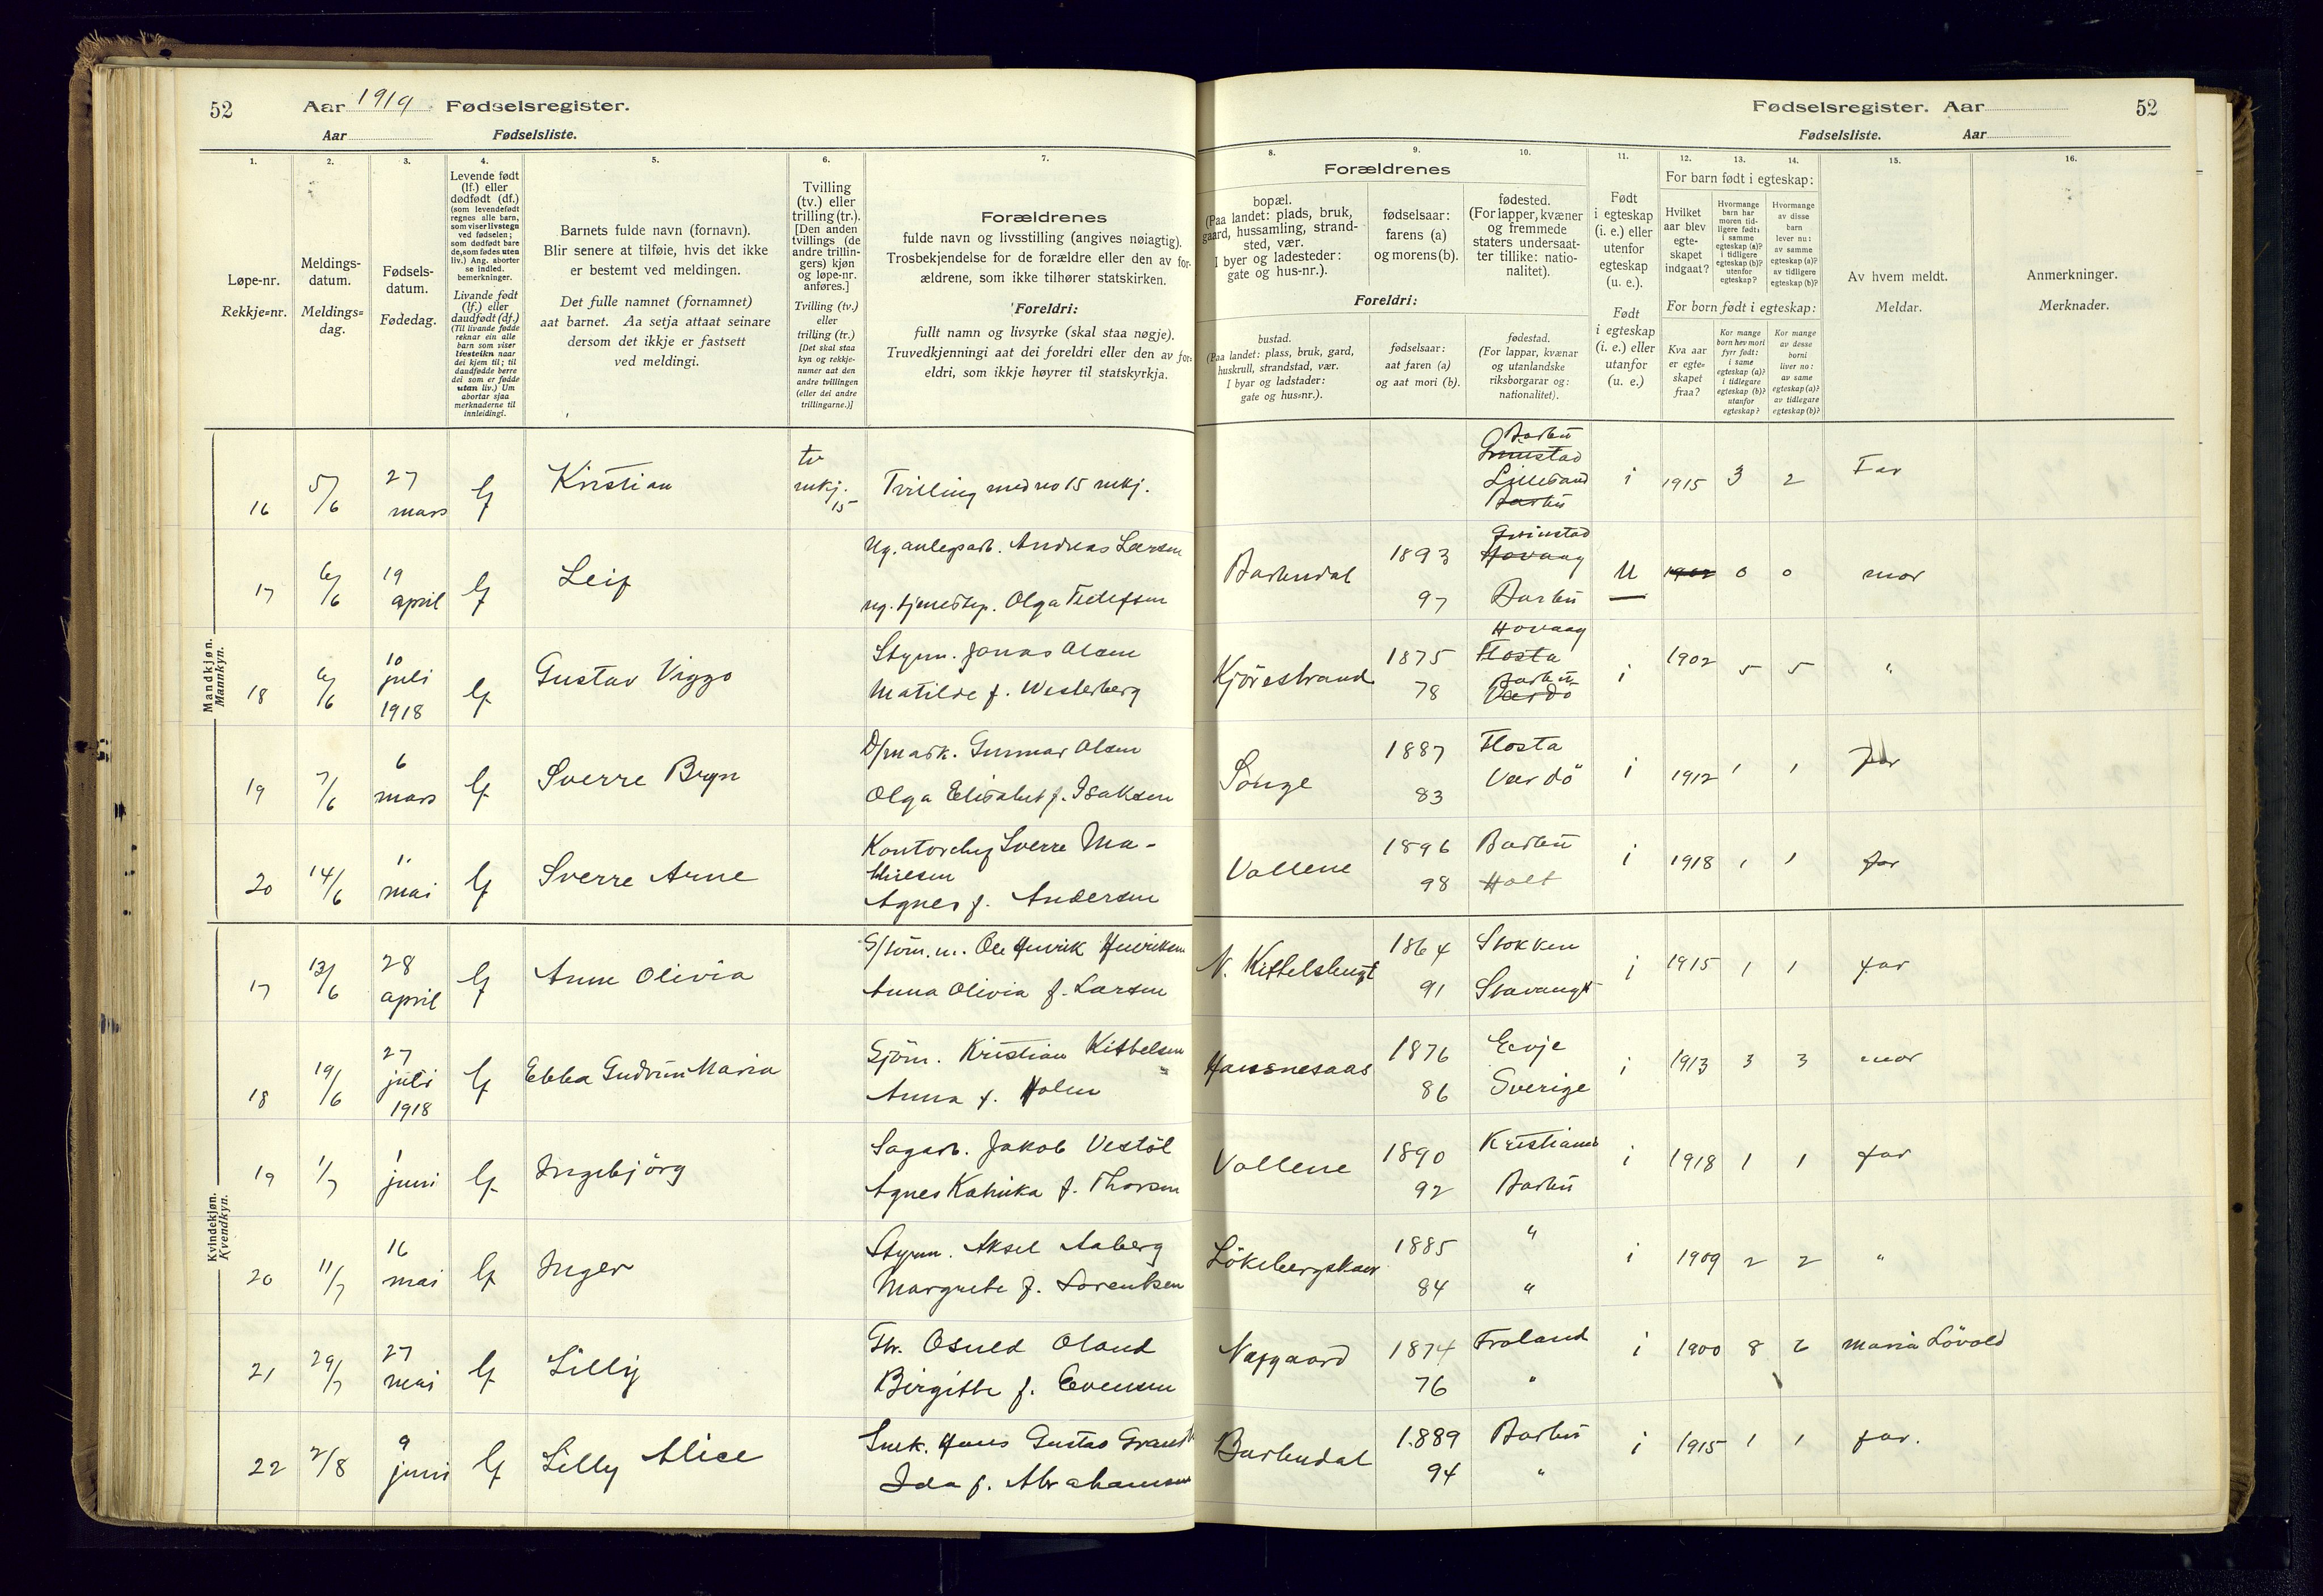 52 Aar 1919 Fødselsregister.
Aar Fødselsliste.
Fødselsregister. Aar 52
Fødselsliste. Aar
1. 2. 3. 4. 5. 6. 7.
Løpe-nr.
Rekkje=nr.
Meldings-
datum.
Meldings=
dag.
Fødsels-
datum.
Fødedag.
Levende født
(lf.) eller
dødfødt (df.)
(som levendefødt
regnes alle barn,
som viser livstegn
ved fødselen;
som dødfødt bare
de, som fødes uten
liv.) Ang. aborter
se indled.
bemerkninger.
Livande født
(lf.) eller
daudfødt (df.)
(Til livande fødde
reknar ein alle
barn som viser
livsteikn naar
dei kjem til; til
daudfødde berre
dei som er fødde
utan liv.) Um
abortar sjaa
merknaderne til
innleidingi.
Barnets fulde navn (fornavn).
Blir senere at tilføie, hvis det ikke
er bestemt ved meldingen.
Det fulle namnet (fornamnet)
aat barnet. Aa setja attaat seinare
dersom det ikkje er fastsett
ved meldingi.
Tvilling
(tv.) eller
trilling (tr.).
[Den anden
tvillings (de
andre trillin-
gers) kjøn
og løpe-nr.
anføres.]
Tvilling (tv.)
eller
trilling (tr.)
[Det skal staa
kyn og rekkje-
numer aat den
andre tvillingen
(eller dei andre
trillingarne.)]
Forældrenes
fulde navn og livsstilling (angives nøiagtig).
Trosbekjendelse for de forældre eller den av for-
ældrene, som ikke tilhører statskirken.
Foreldri:
fullt namn og livsyrke (skal staa nøgje).
Truvedkjenningi aat dei foreldri eller den av for-
eldri, som ikkje høyrer til statskyrkja.
8. 9. 10. 11. 12. 13. 14. 15. 16.
Forældrenes
bopæl.
(Paa landet: plads, bruk,
gaard, hussamling, strand-
sted, vær.
I byer og ladesteder:
gate og hus-nr.).
fødselsaar:
farens (a)
og morens (b).
fødested.
(For lapper, kvæner
og fremmede
staters undersaat-
ter tillike: natio-
nalitet).
Foreldri:
bustad.
(Paa landet: plass, bruk, gard,
huskrull, strandstad, vær.
I byar og ladstader:
gate og hus=nr.).
fødselsaar:
aat faren (a)
og aat mori (b).
fødestad.
(For lappar, kvænar
og utanlandske
riksborgarar og:
nationalitet).
Født
i egteskap
(i. e.) eller
utenfor
egteskap
(u. e.).
Født
i egteskap
(i. e.) eller
utanfor
(u. e.)
For barn født i egteskap:
Hvilket
aar blev
egte-
skapet
indgaat?
Hvormange
barn har
moren tid-
ligere født:
i samme
egteskap (a)?
i tidligere
egteskap (b)?
utenfor
egteskap?
Hvormange
av disse
barn
lever nu:
av samme
egteskap (a)?
av tidligere
egteskap (b)?
For born født i egteskap:
Kva aar
er egte=
skapet
fraa?
Kor mange
born hev mori
fyrr født:
i same
egteskap (a)?
i tidlegare
egteskap (b)?
utanfor
egteskap?
Kor mange
av desse
borni
liver no:
av same
egteskap (a)?
av tidlegare
egteskap (b)?
Av hvem meldt.
Meldar.
Anmerkninger.
Merknader.
Mandkjøn.
Mannkyn.
16 5/6 27 mars lf Kristian tv mkj. 15 Tvilling med no 15 mkj. Barbu Grimstad Lillesand Barbu i 1915 3 2 Far
17 6/6 19 april lf Leif Ug. anlegsarb. Andreas Larsen
ug. tjenestep. Olga Barbudal 1893 97 Grimstad Hovaag Barbu u 1902 0 0 mor
18 6/6 10 juli 1918 lf Gustav Viggo Styrm. Jonas Olsen
Matilde f. Westerberg Kjörestrand 1875 78 Hovaag Flosta Barbu Værdö i 1902 5 5 "
19 7/6 6 mars lf Sverre Bryn D/mask. Gunnar Olsen
Olga Elisabet f. Isaksen Songe 1887 83 Flosta Værdö i 1912 1 1 far
20 14/6 11 mai lf Sverre Arne Kontorchef Sverre Ma-
thiesen
Agnes f. Andersen Vollene 1896 98 Barbu Holt i 1918 1 1 far
Kvindekjøn.
Kvendkyn.
17 13/6 28 april lf Anne Olivia Ole Henrik Henriksen
Anna Olivia f. Larsen N. 1864 91 Stokken i 1915 1 1 far
18 19/6 27 juli 1918 lf Ebba Gudrun Maria Sjöm. Kristian Kittelsen
Anna f. Holm 1876 86 Evje Sverige i 1913 3 3 mor
19 1/7 1 juni lf Ingebjörg Sagarb. Jakob Vestöl
Agnes Katinka f. Thorsen Vollene 1890 92 Barbu i 1918 1 1 far
20 11/7 16 mai lf Inger Styrm. Aksel Aaberg
Margrete f. Lorentsen 1885 84 " " i 1909 2 2 "
21 29/7 27 mai lf Lilly Osuld Oland
Birgitte f. Evensen Næfgaard 1874 76 Froland " i 1900 8 6 Maria Lövold
22 2/8 9 juni lf Lilly Alice Snek. Hans Gustav
Ida f. Abrahamsen Barbudal 1889 94 Barbu " i 1915 1 1 far.